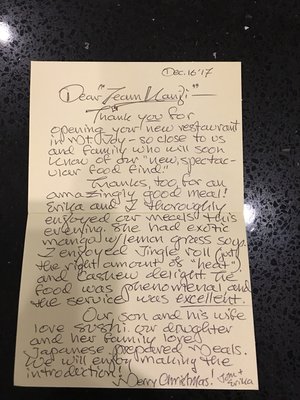 Dec. 16 '17
Dear "Team Kanji" —
Thank you for
opening your new restaurant
in Mt. Joy - so close to us
and family who will soon
know of our "new, spectac-
ular food find."
Thanks, too, for an
amazingly good meal!
Erika and I thoroughly
enjoyed our meals this
evening. She had exotic
mango w/lemon grass soup.
I enjoyed Jingle roll (just
the right amount of "heat")
and cashew delight. The
food was phenomenal and
the service was excellent.
Our son and his wife
love sushi. Our daughter
and her family loves
Japanese prepared meals.
We will enjoy making the
introduction!
Merry Christmas! Jim +
Erika